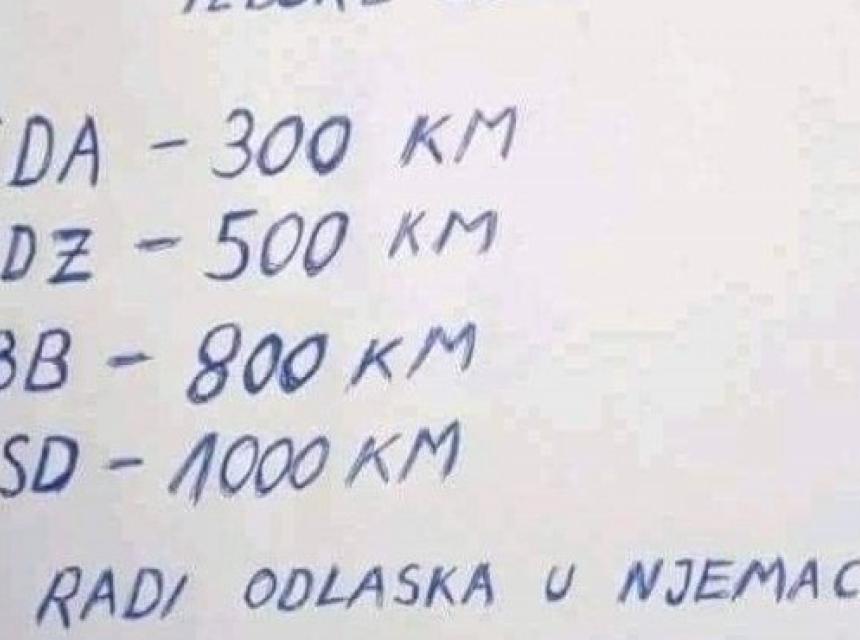 DA - 300 KM
DZ - 500 KM
BB - 800 KM
SD - 1000 KM
RADI ODLASKA U NJEMAC